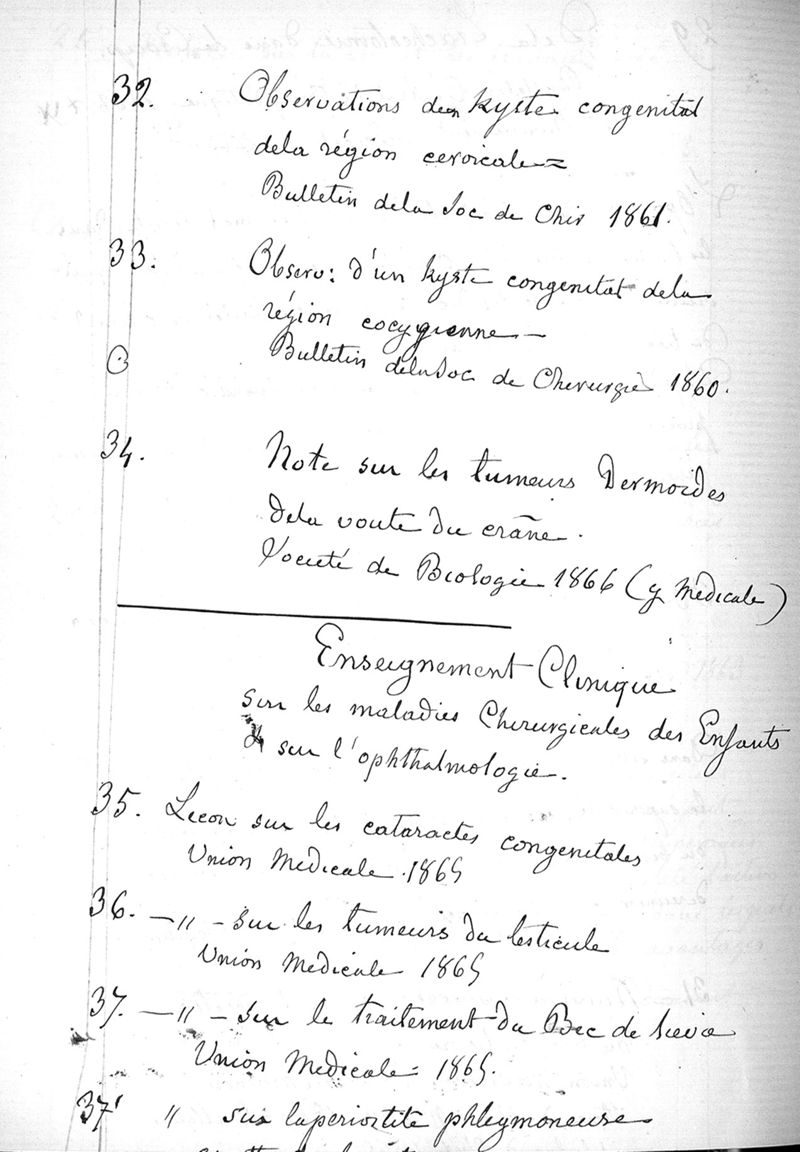 32. Observations d'un kyste congenital
dela région cervicale =
Bulletin dela Soc de Chir 1861.
33. Observ: d'un kyste congenital dela
région cocygienne —
Bulletin dela Soc de Chirurgie 1860.
34. Note sur les tumeurs Dermoïdes
dela voute du crâne.
Société de Biologie 1866 (g Médicale)
Enseignement Clinique
sur les maladies Chirurgicales des Enfants
& sur l'ophthalmologie.
35. Lecon sur les cataractes congenitales
Union Medicale 1865
36. —〃— sur les tumeurs du testicule
Union Médicale 1865
37. —〃— sur le traitement du Bec de Lievre
Union Medicale 1865.
37' 〃 sur la periostite phlegmoneuse